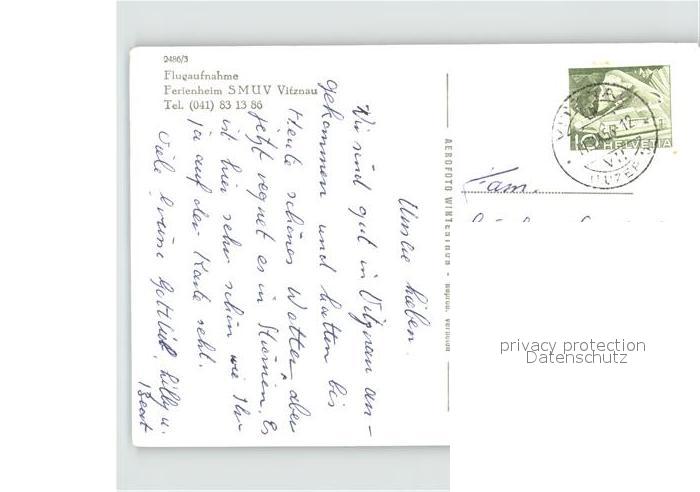 2486/3
Flugaufnahme
Ferienheim SMUV Vitznau
Tel. (041) 83 13 86
Unsre lieben.
Wir sind gut in Vitznau an-
gekommen und hatten bis
Heute schönes Wetter, aber
jetzt regnet es in Strömen. Es
ist hier sehr schön wie Ihr
ja auf der Karte seht.
Viele Grüsse Gottlieb, Lilly u.
Beat
AEROFOTO WINTERTHUR - Reprod. verboten
HELVETIA
Fam.
privacy protection
Datenschutz